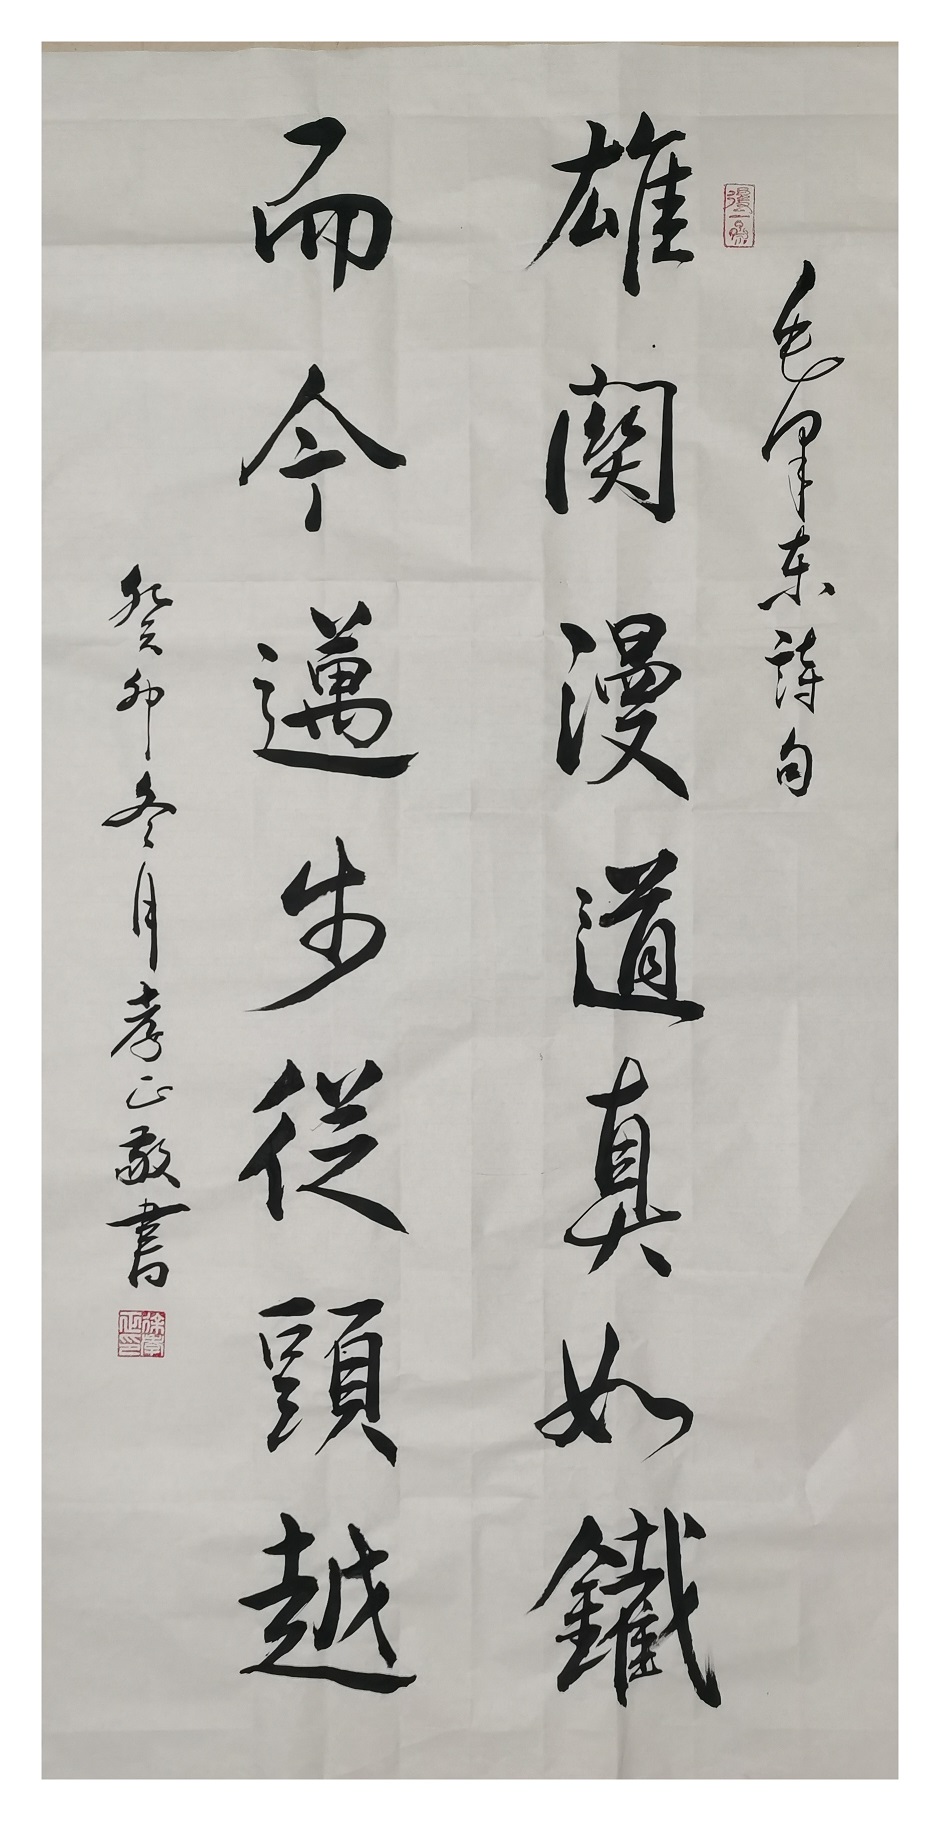 毛澤东詩句
雄関漫道真如鐵
而今邁步從頭越
癸卯冬月孝正敬書